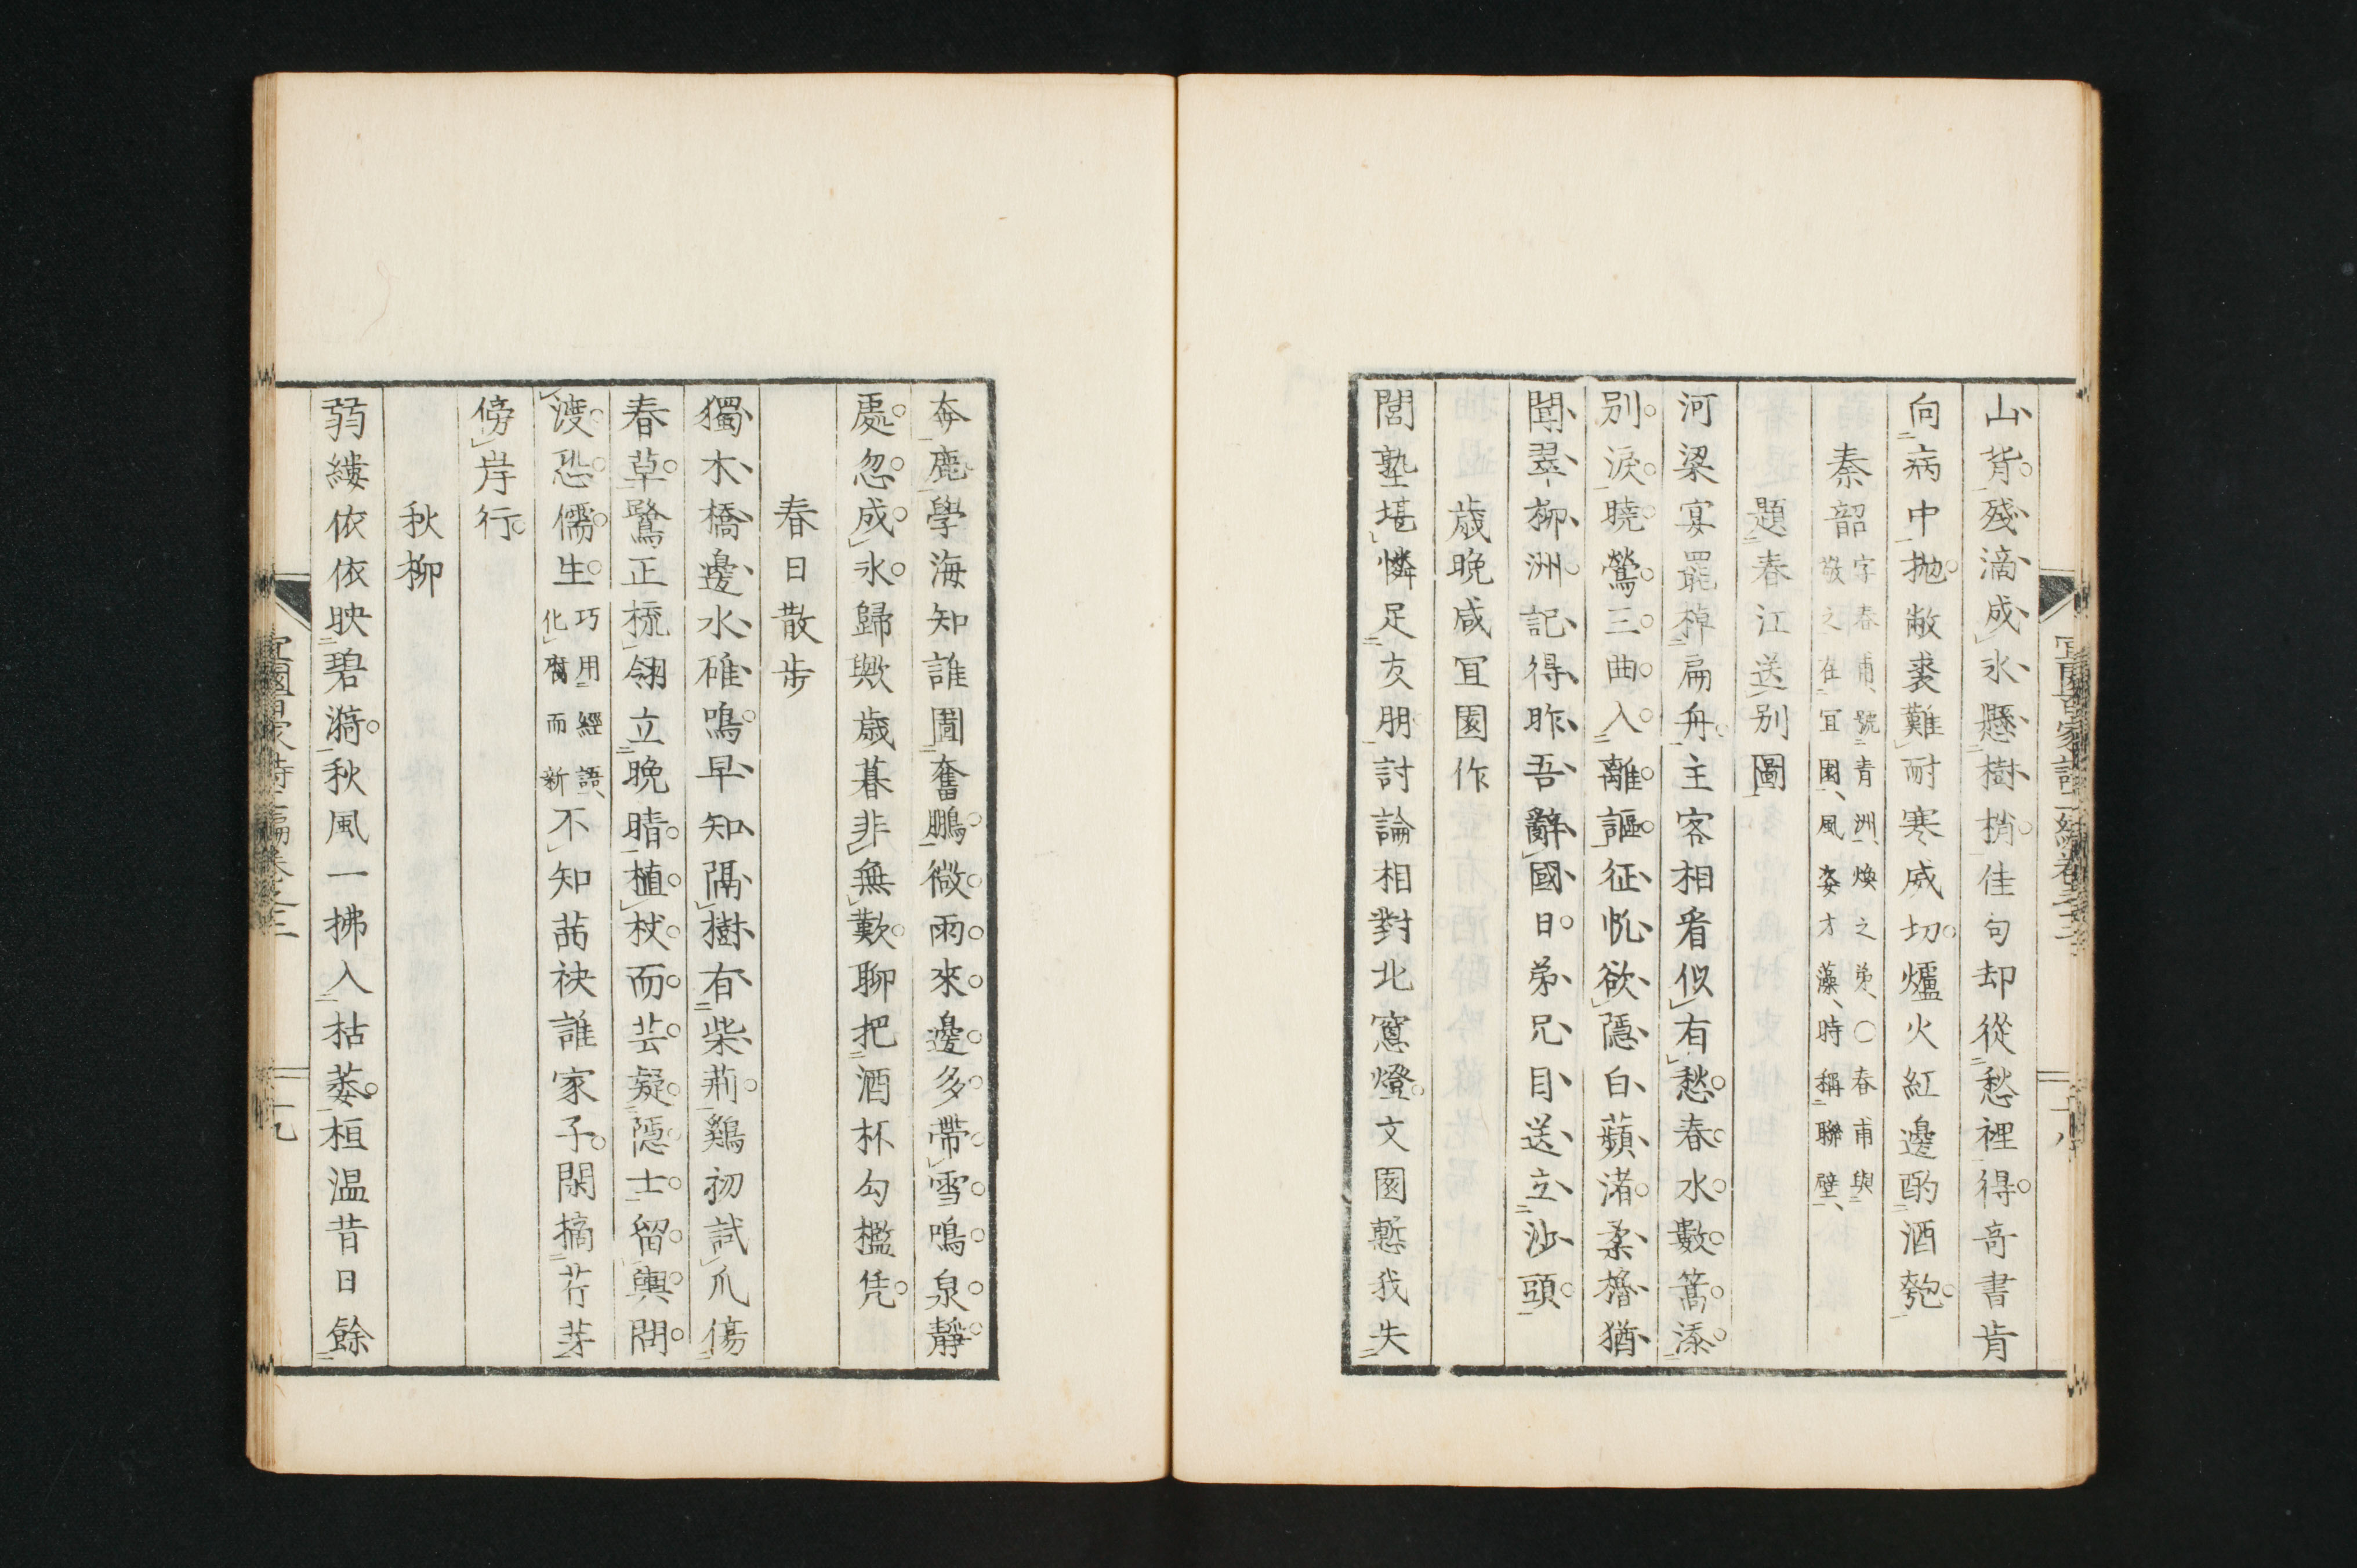 山背殘滴成氷懸樹梢佳句却從愁裡得奇書肯
向病中抛敝裘難耐寒威切爐火紅邊酌酒匏
秦韶
字春甫、號青洲、煥之弟、○春甫與
敬之在宜園、風姿才藻、時稱聯璧、
題春江送別圖
河梁宴罷棹扁舟主客相看似有愁春水數篙添
別淚曉鶯三曲入離謳征帆欲隱白蘋渚柔櫓猶
聞翠柳洲記得昨吾辭國日弟兄目送立沙頭
歲晚咸宜園作
閭塾堪憐足友朋討論相對北窓燈文園慙我失
奔鹿學海知誰圖奮鵬微雨來邊多帶雪鳴泉靜
處忽成氷歸歟歲暮非無歎聊把酒杯勾檻凭
春日散步
獨木橋邊水碓鳴早知隔樹有柴荊鷄初試爪傷
春草鷺正梳翎立晚晴植杖而芸疑隱士留輿問
渡恐儒生
巧用經語、
化腐而新
不知茜袂誰家子閑摘荇芽
傍岸行
秋柳
弱縷依依映碧漪秋風一拂入枯萎桓温昔日餘